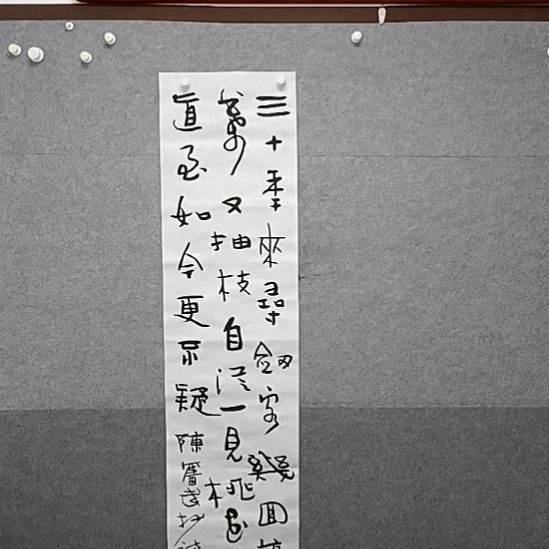 三十年來尋劍客幾回落
葉又抽枝自從一見桃花
直至如今更不疑
陳
抄